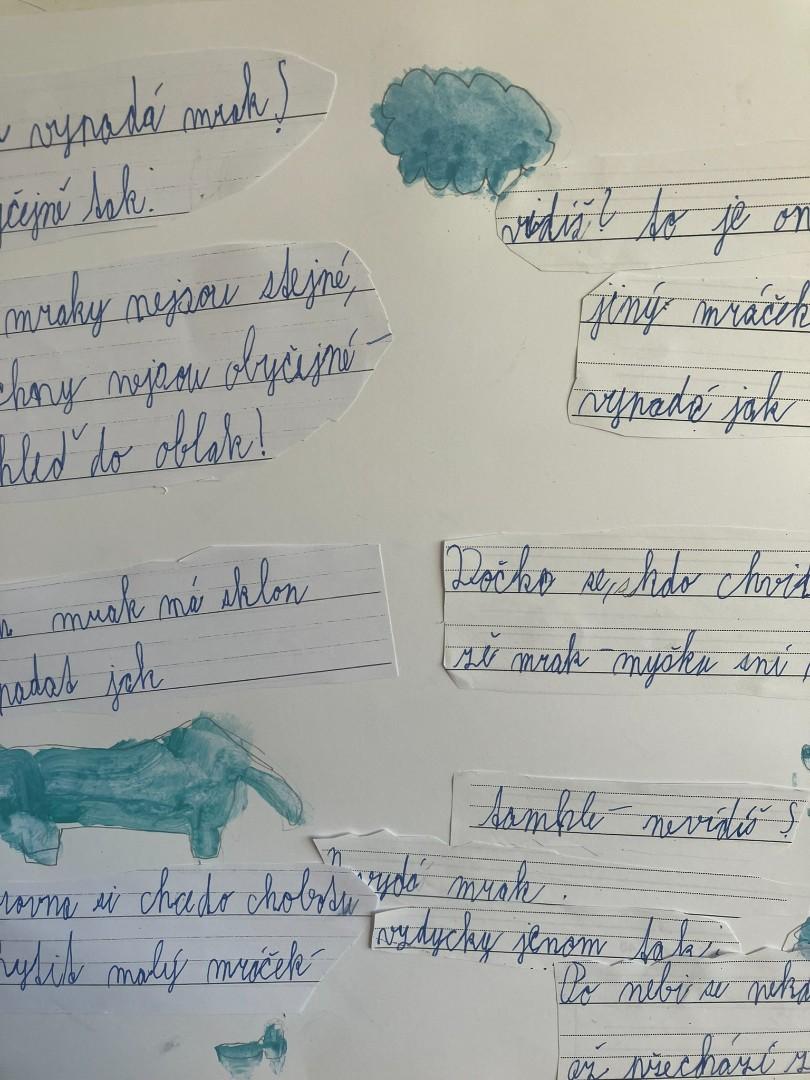 vypadá mrak?
yčejně tak.
mraky nejsou stejné,
chny nejsou obyčejné –
hleď do oblak!
mrak má sklon
padat jak
rovna si chce do chobotu
hytit malý mráček
vidíš? to je on
jiný mráček
vypadá jak
Počko se, kdo chvid
že mrak – myšku sní
tamhle – nevidíš?
mrak.
vždycky jenom tak.
Po nebi se neko
až přechází z